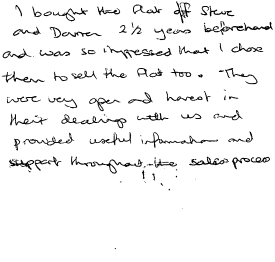 I bought the flat off Steve
and Darren 2½ years beforehand
and was so impressed that I chose
them to sell the flat too. They
were very open and honest in
their dealings with us and
provided useful information and
support throughout the sales process
!!